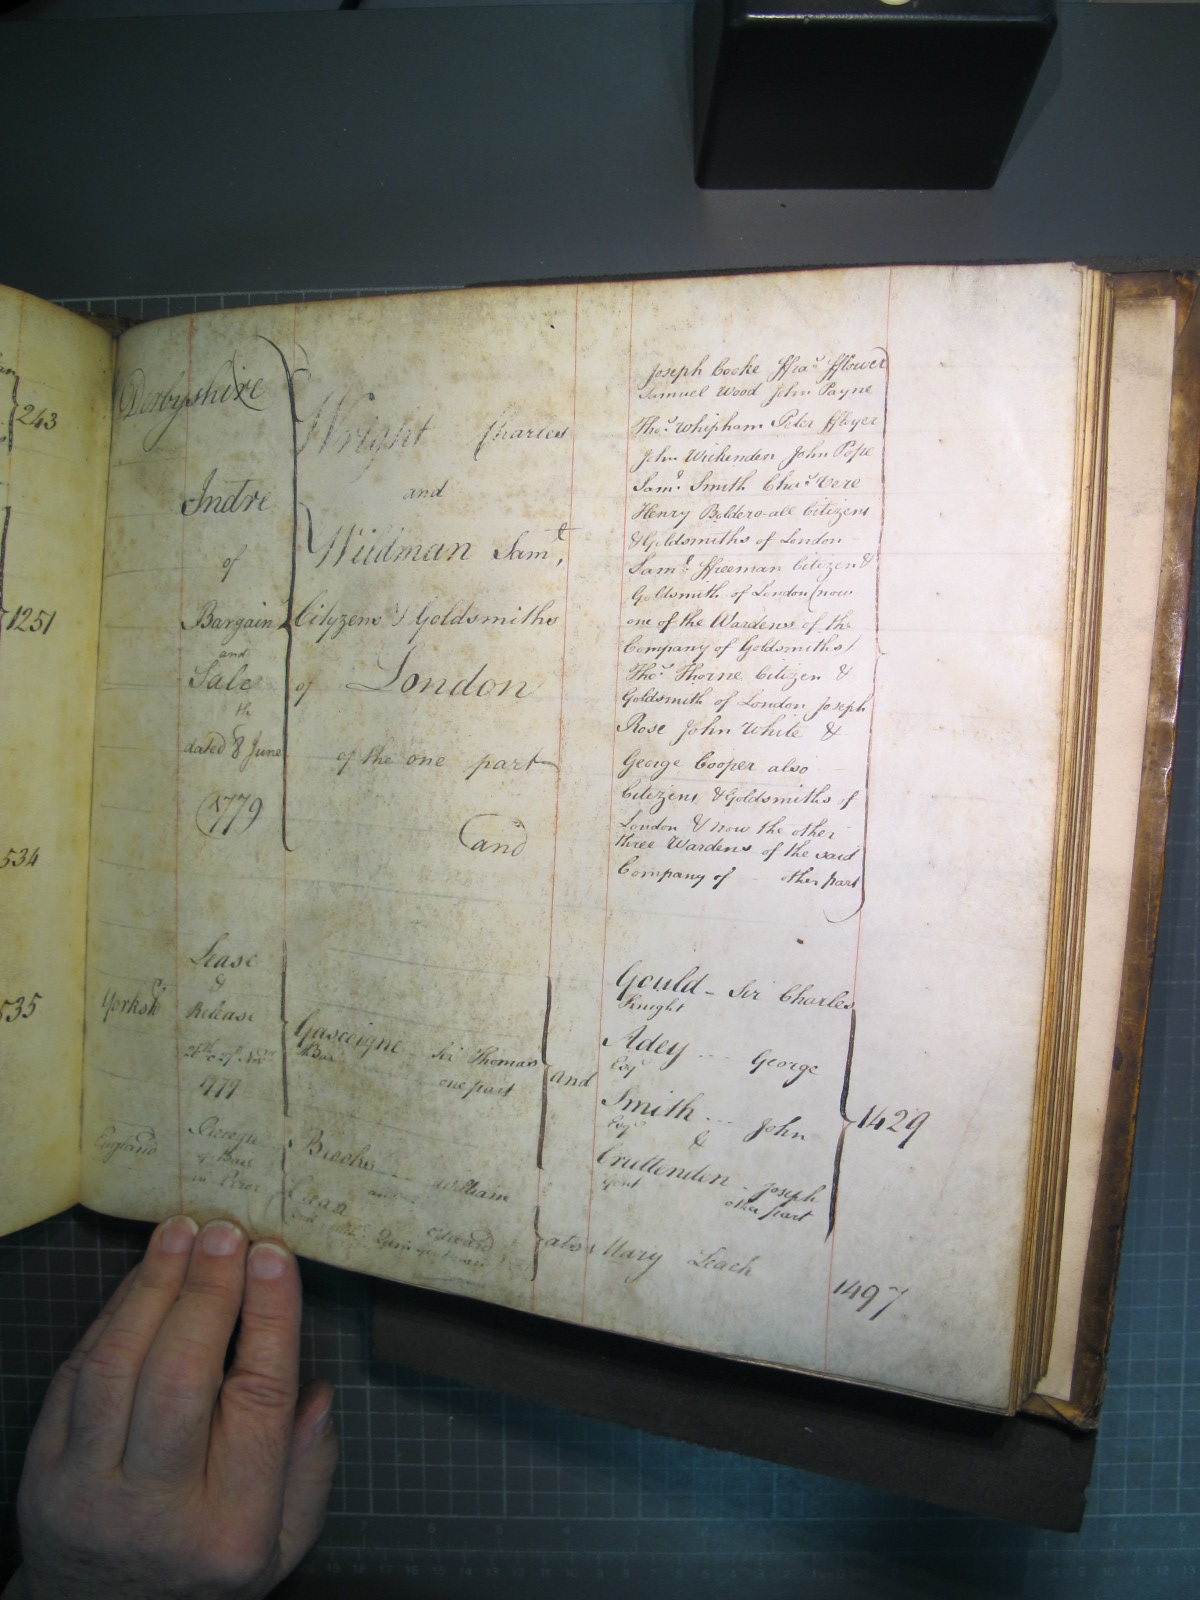 243
1251
534
535
Derbyshire
Indre
of
Bargain
and
Sale
th
dated 8 June
1779
Wright Charles
and
Wildman Saml,
Citizens & Goldsmiths
of London
of the one part
and
Joseph Cooke ffras fflower
Samuel Wood John Payne
Thos Whipham Peter ffloyer
John Wickenden John Pope
Saml Smith Chas Vere
Henry Boldero all Citizens
& Goldsmiths of London
Saml ffreeman Citizen &
Goldsmith of London (now
one of the Wardens of the
Company of Goldsmiths)
Thos Thorne Citizen &
Goldsmith of London Joseph
Rose John White &
George Cooper also
Citizens & Goldsmiths of
London & now the other
three Wardens of the said
Company of - other part
Yorksh
Lease
&
Release
Gascoigne - Sir Thomas
Bart
one part
and
Gould - Sir Charles
Knight
Adey --- George
Esqr
Smith --- John
Esqr &
Cruttenden - Joseph
Gent
other part
1429
England
in Error
Brooks - William
and
Edward
Mary Leach
1497